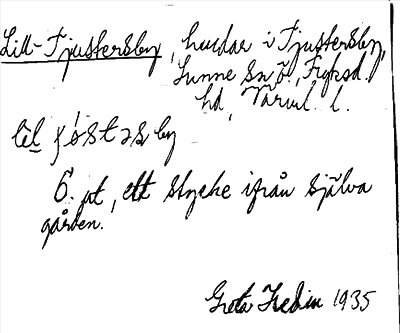 Lill-Tjustersby, hudar i Tjustersby,
Sunne sn ö, Fryksd.
hd, Värml. l.
lel
6. pt, ett stycke ifrån själva
gården.
Greta Hedin 1935